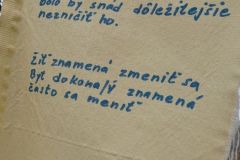 bolo by snáď dôležitejšie
nezničiť ho.
Žiť znamená zmeniť sa
Byť dokonalý znamená
často sa meniť